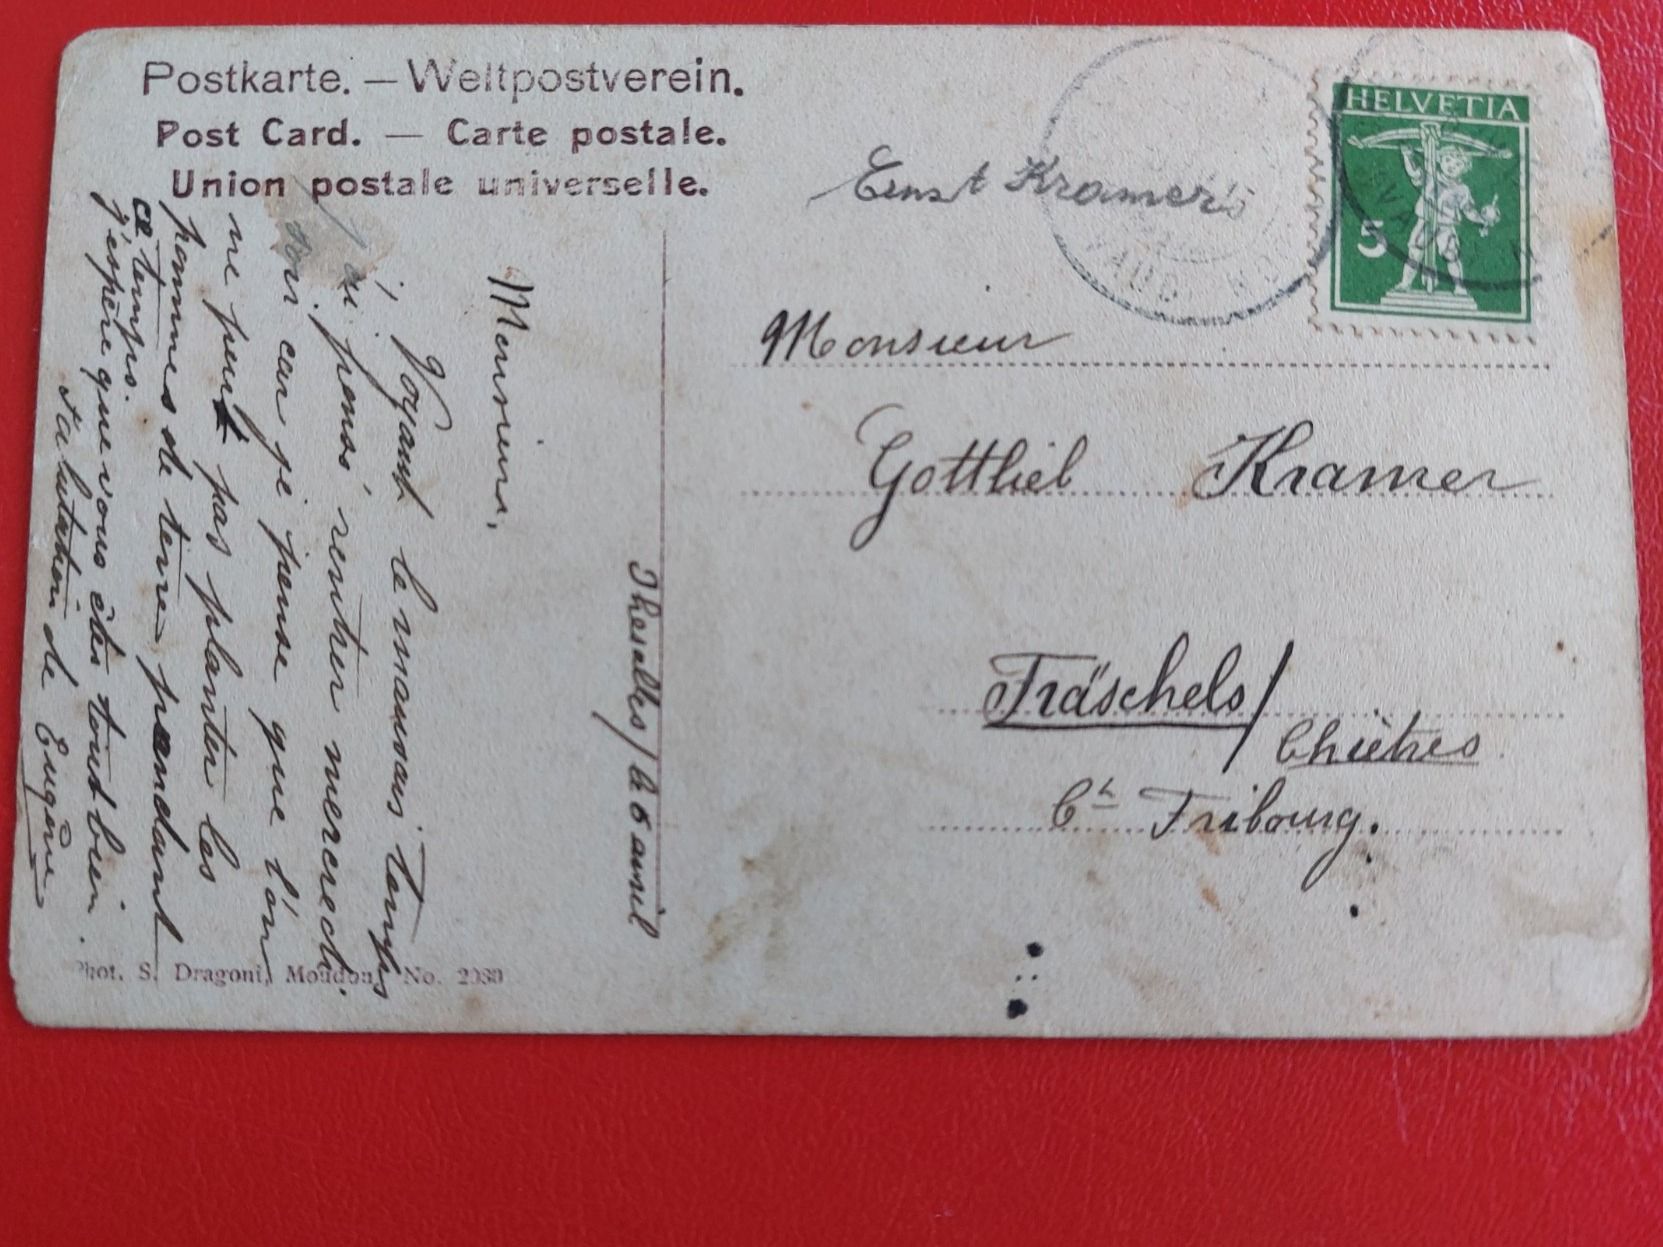 Postkarte. — Weltpostverein.
Post Card. — Carte postale.
Union postale universelle.
HELVETIA
5
VAUD
Ernst Kramer's
Monsieur
Gottlieb Kramer
Fräschels/
Chiètres
Ct Fribourg.
Thesalles/le 6 avril
Monsieur,
Voyant le mauvais temps
j'ai pensé rentrer mercredi
soir car je pense que l'on
ne peut pas planter les
pommes de terres pendant
ce temps.
J'espère que vous êtes tout bien.
Salutation de Eugène
Phot. S. Dragoni, Moudon, No. 2030